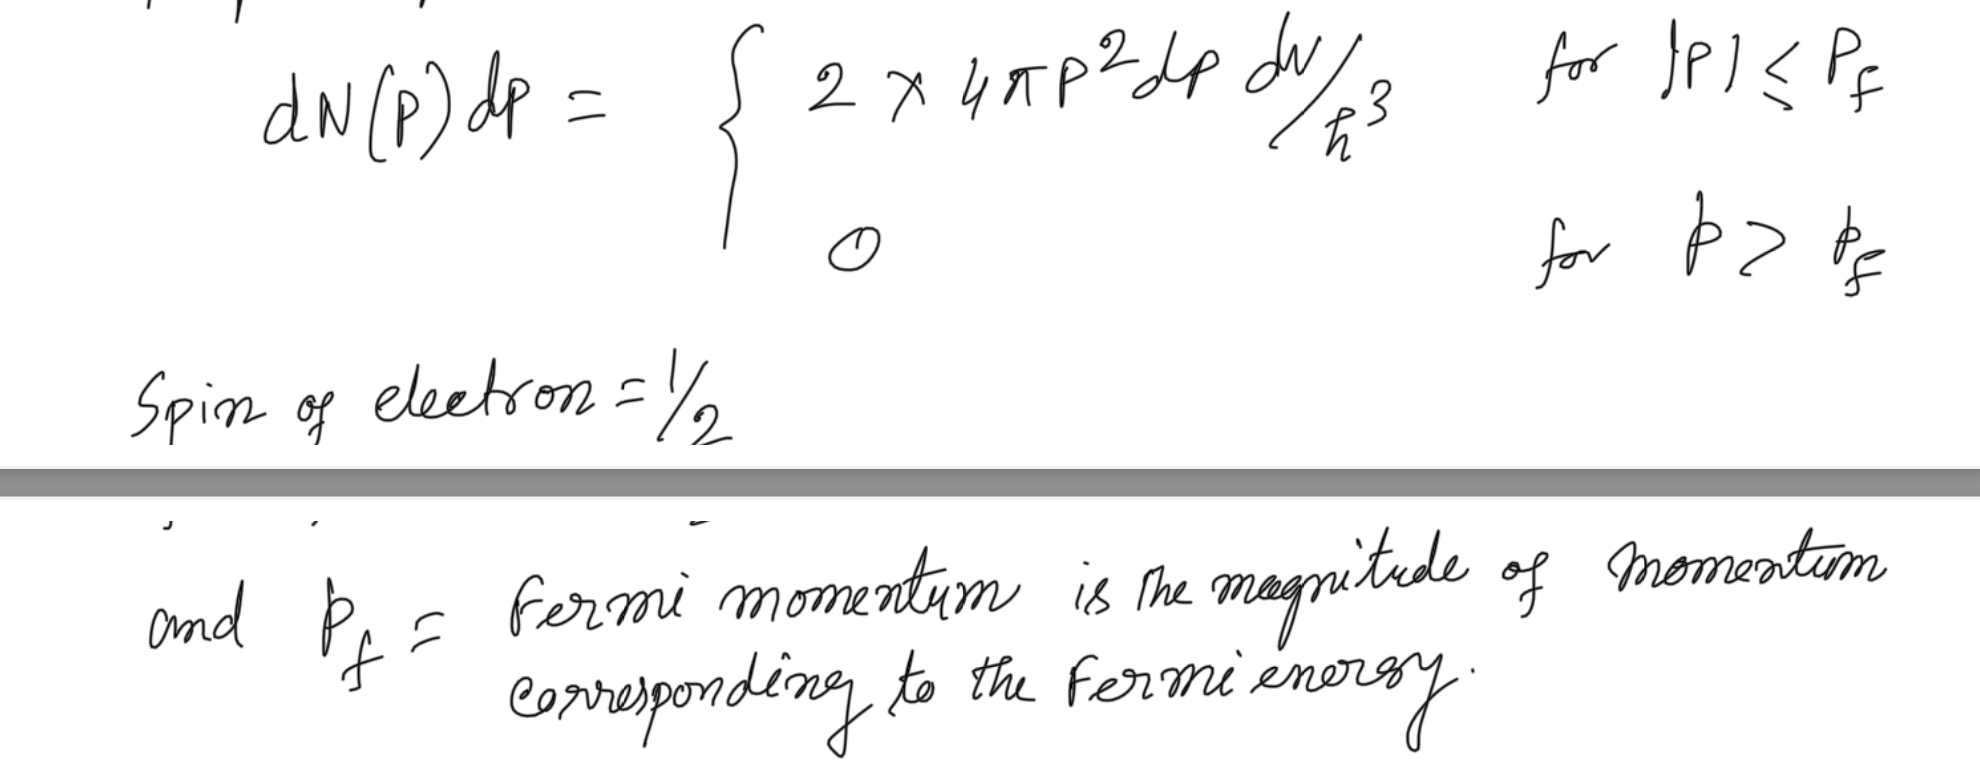 dN(p) dp = { 2 × 4πp² dp dv/ħ³ for |p| ≤ P_f
0 for p > p_f
Spin of electron = 1/2
and p_f = Fermi momentum is the magnitude of momentum
corresponding to the Fermi energy.